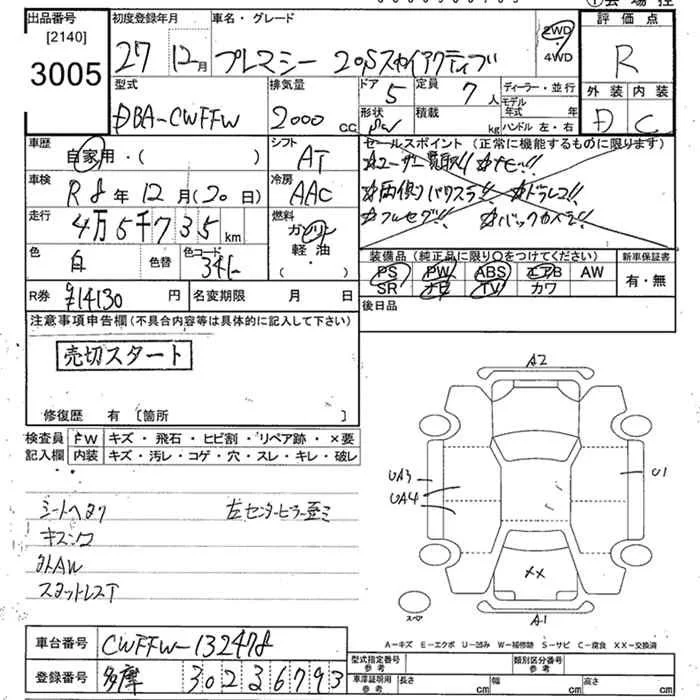 出品番号 初度登録年月 車名・グレード 評価点
[2140]
3005
27 12月 プレマシー 20Sスカイアクティブ 2WD・4WD R
型式 排気量 ドア 定員 ディーラー・並行 外装 内装
DBA-CWFFW 2000cc 5 7人 モデル年式 年 D C
形状 積載 kg ハンドル 左・右
車歴 自家用・( ) シフト AT
セールスポイント (正常に機能するものに限ります)
車検 R8年12月(20日) 冷房 AAC
走行 4万5千735km 燃料 ガソリン 軽・油
色 白 色替 色コード
装備品 (純正品に限り○をつけてください) 新車保証書
PS PW ABS エアB AW 有・無
SR TV カワ
R券 円 名変期限 月 日 後日品
注意事項申告欄(不具合内容等は具体的に記入して下さい)
売切スタート
修復歴 有 〔箇所 〕
検査員 FW キズ・飛石・ヒビ割・リペア跡・×要
記入欄 内装 キズ・汚レ・コゲ・穴・スレ・キレ・破レ
シートヘタリ 左センターピラー歪ミ
外AW
スタットレスT
A2
UA3 U1
UA4
××
スペア A1
A－キズ E－エクボ U－凹み W－補修跡 S－サビ C－腐食 XX－交換済
車台番号 CWFFW-132478
登録番号 多摩 302 3 6793
型式指定番号 参考 類別区分番号 参考
車庫証明用 参考 長さ cm 幅 cm 高さ cm